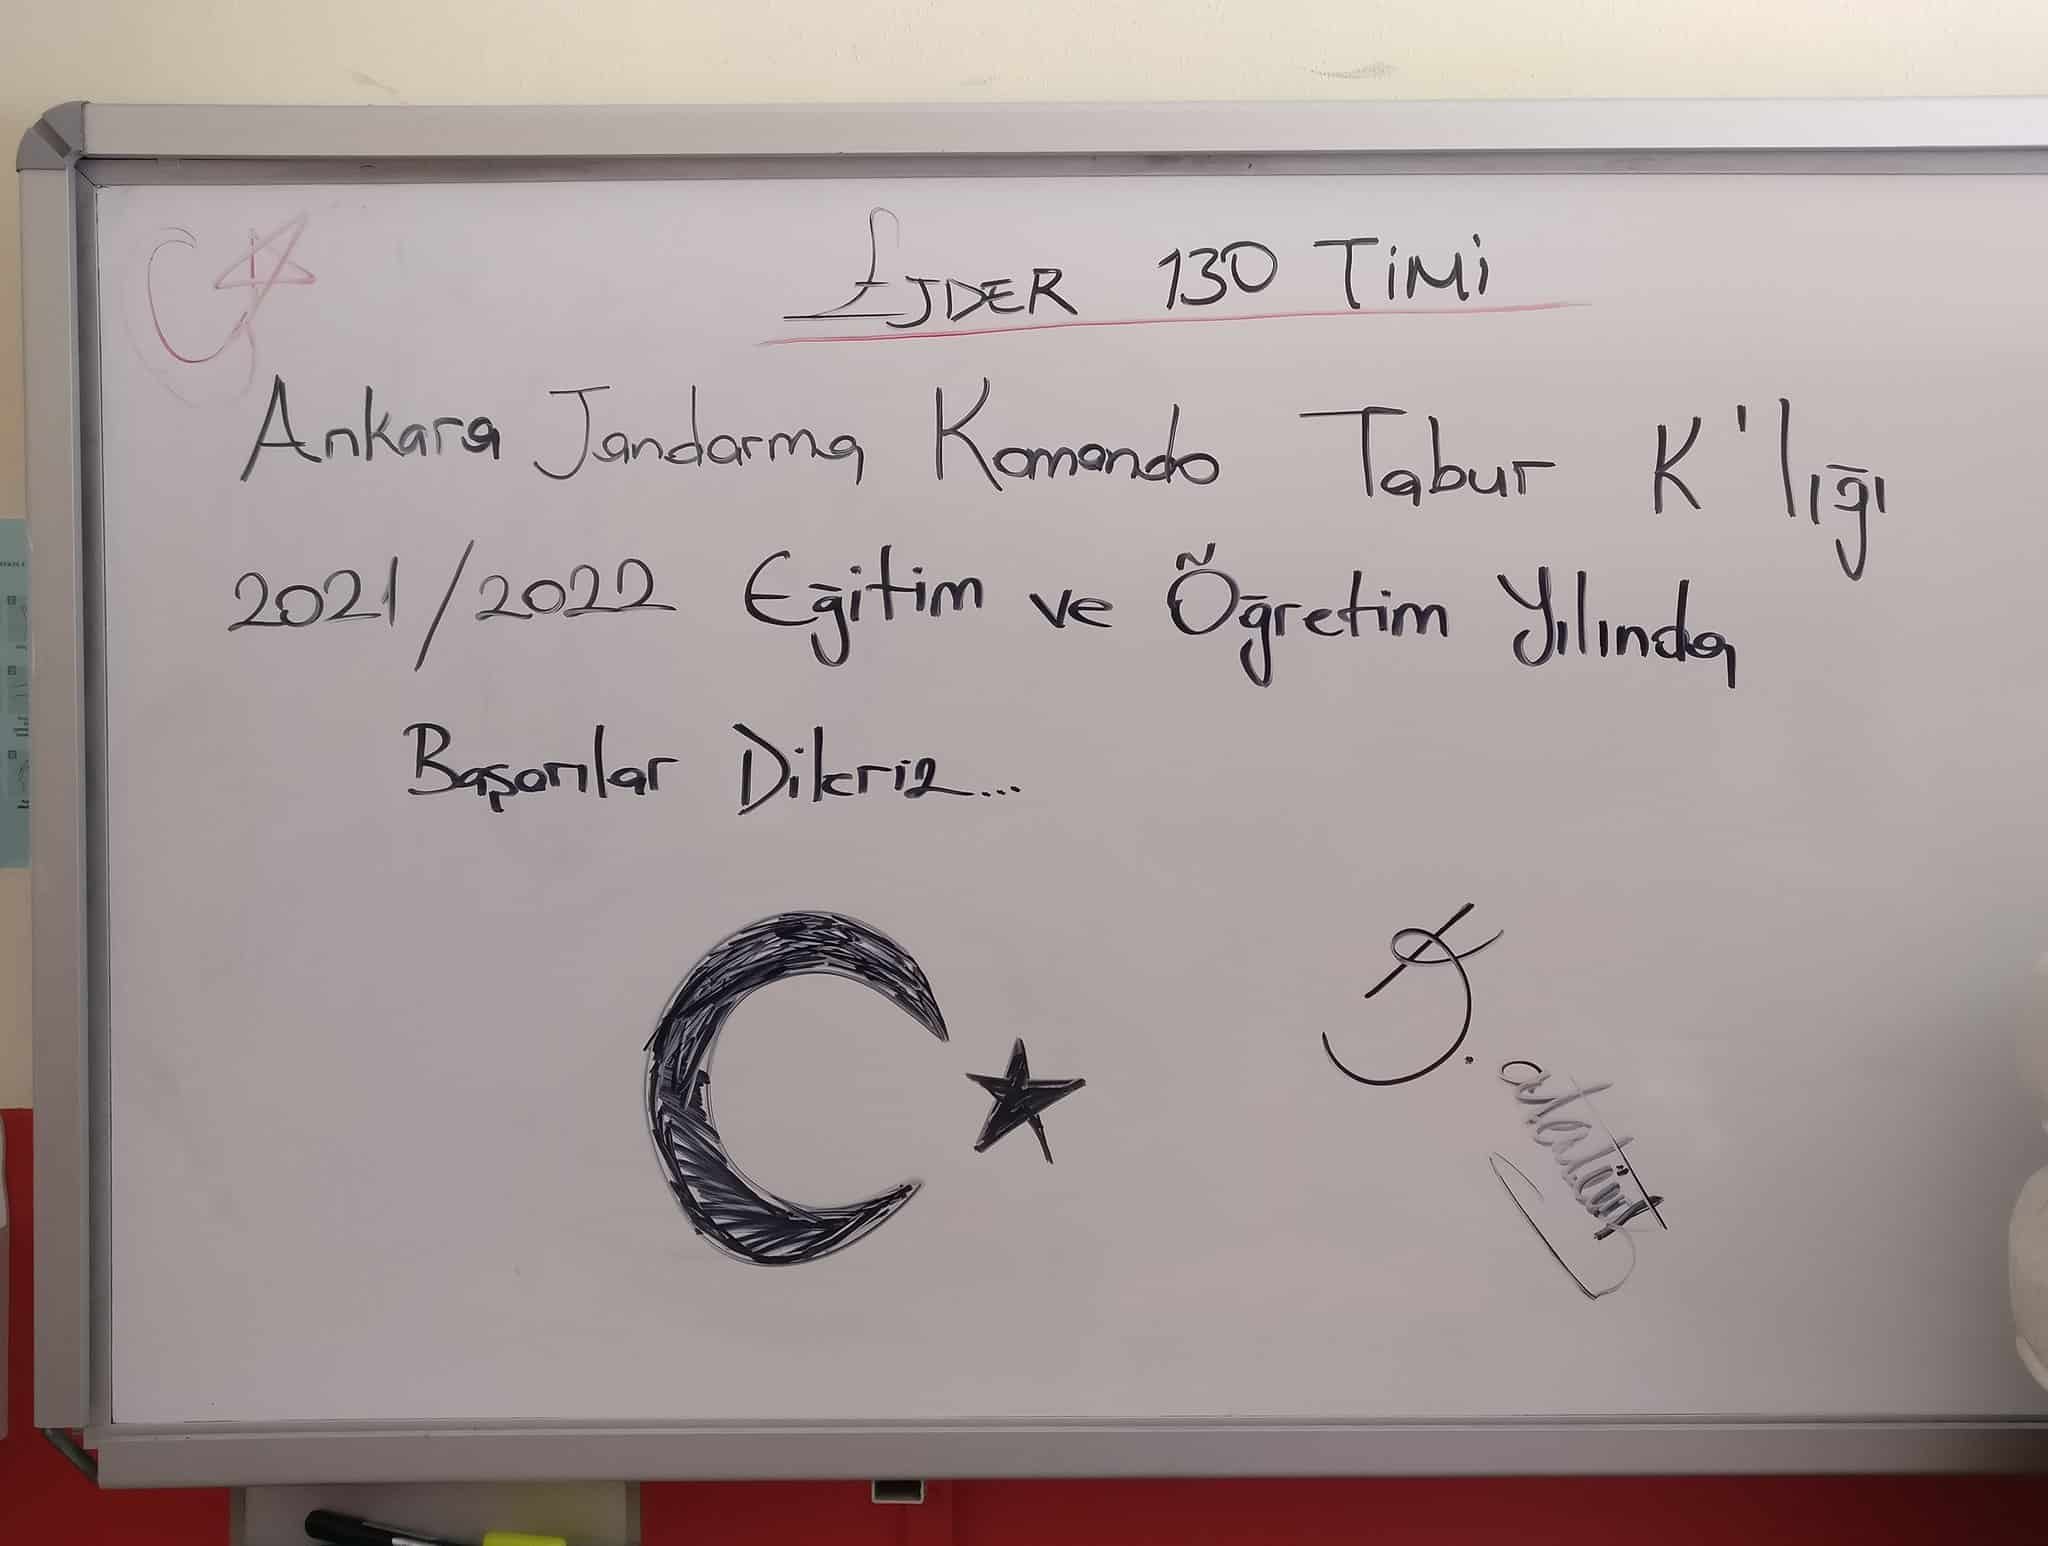 EJDER 130 TİMİ
Ankara Jandarma Komando Tabur K'lığı
2021/2022 Eğitim ve Öğretim Yılında
Başarılar Dileriz...
K. atatürk